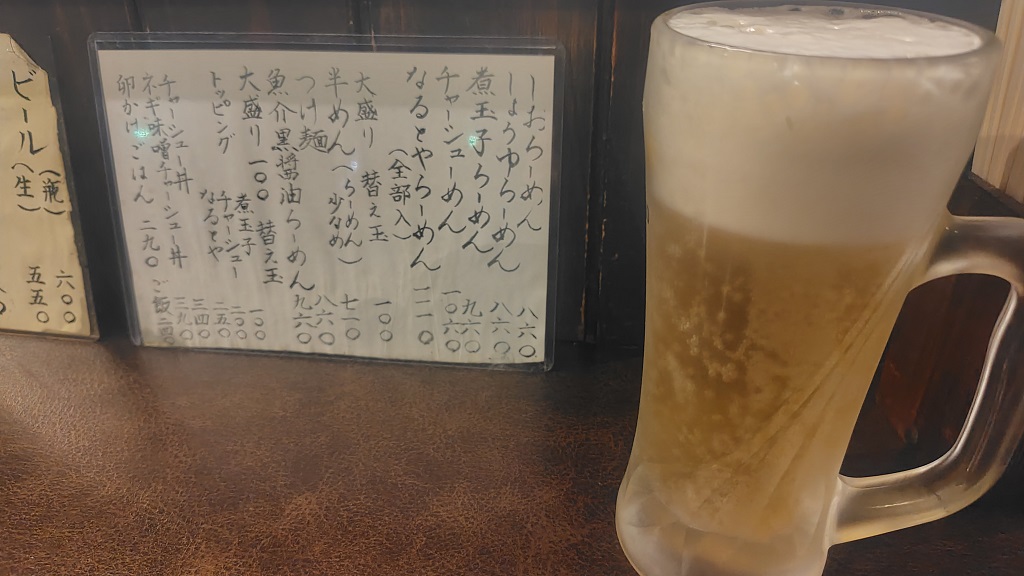 しおらーめん 八六〇
しょうゆらーめん 八六〇
煮玉子らーめん 九六〇
チャーシューめん 一〇六〇
なるとやらーめん 一一一〇
（全部入）
大盛り 替え玉 一〇〇
半めん（らーめん少なめ） 七一〇
つけ麺 八六〇
魚介黒醤油らーめん 九六〇
大盛り 一〇〇 替え玉 一〇〇
トッピング 煮玉子 一〇〇
チャーシュー 二五〇
なるとや 三四〇
チャーシュー丼
ネギ味噌チャーシュー丼
卵かけごはん 二九〇 ご飯
ビール（瓶） 六〇〇
（生） 五五〇